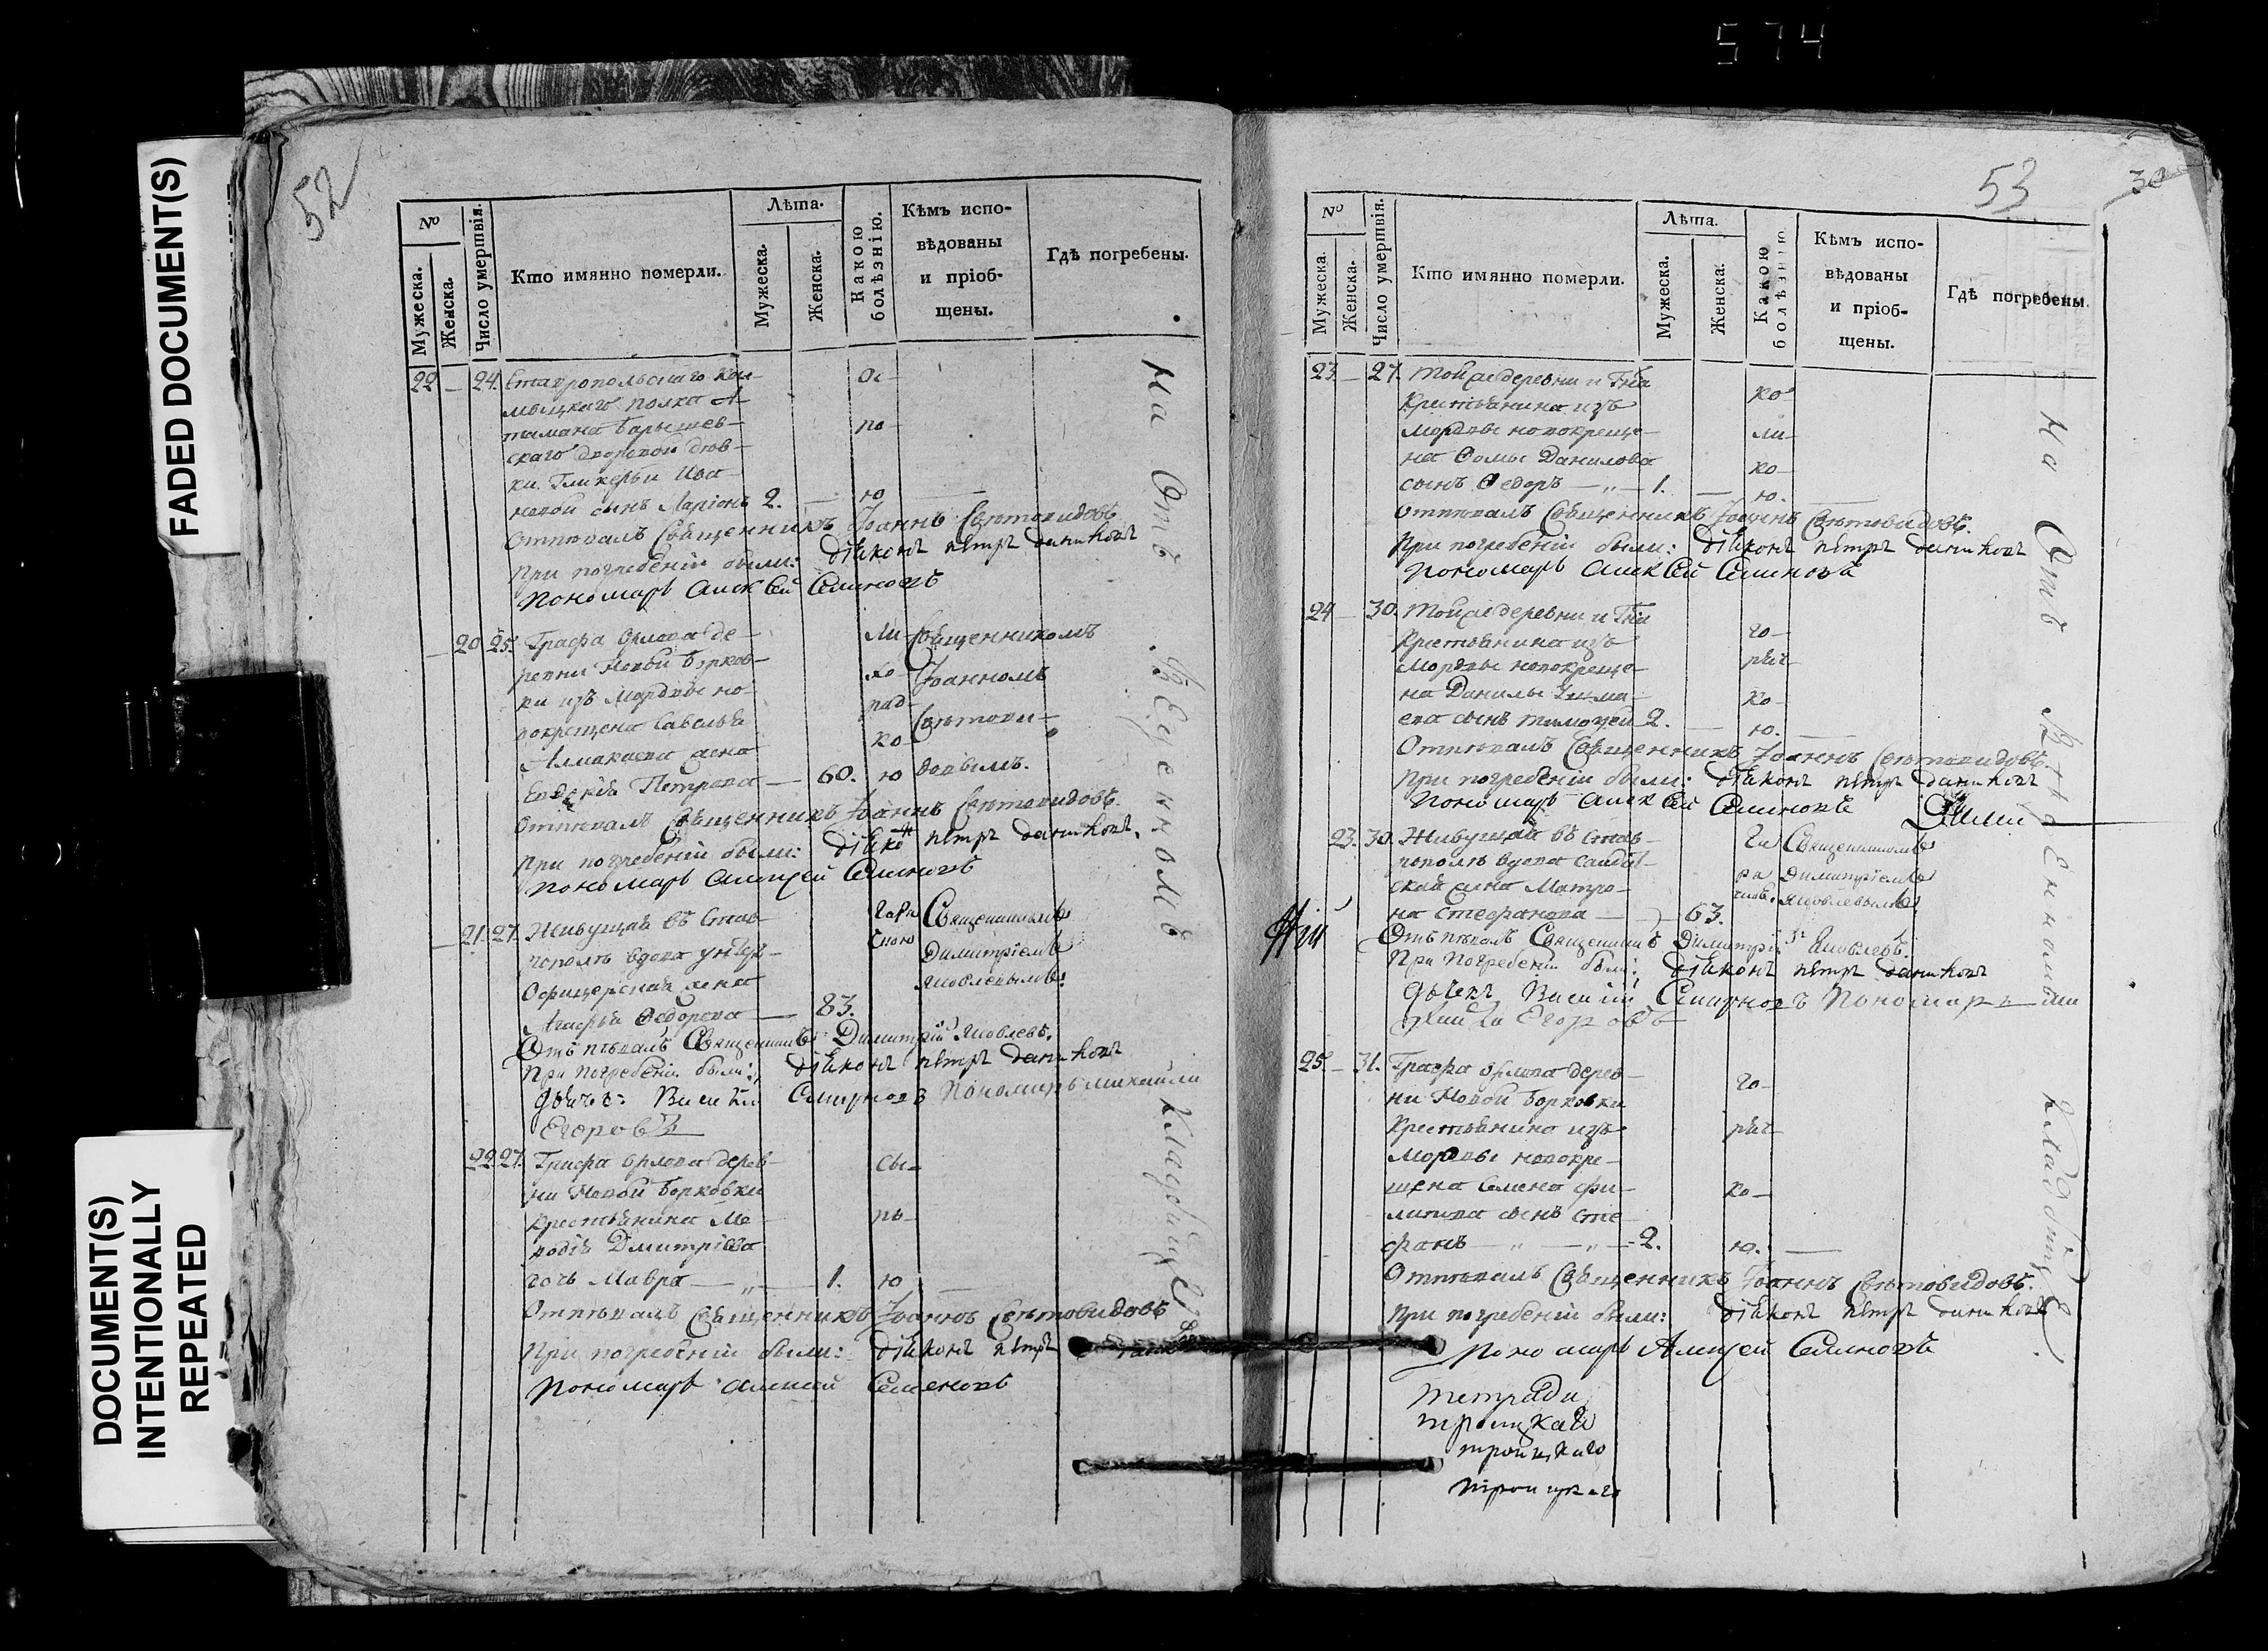 574
FADED DOCUMENT(S)
DOCUMENT(S)
INTENTIONALLY
REPEATED
52
№
Мужеска.
Женска.
Число умертвія.
Кто имянно померли.
Лѣта.
Мужеска.
Женска.
Какою
болѣзнію.
Кѣмъ испо-
вѣдованы
и пріоб-
щены.
Гдѣ погребены.
22 — 24. Ставропольскаго Кал-
мыцкаго полка А-
тамана Барышев-
скаго дворовой дѣв-
ки Гликерьи Ива-
новой сынъ Ларіонъ 2. —
Ос-
по-
ю
Отпѣвалъ Священникъ Іоаннъ Свѣтовидовъ
При погребеніи были: діаконъ петръ
Пономарь Алексей Семеновъ
— 20 25. Графа Орлова де-
ревни Новой Борков-
ки изъ Мордвы но-
вокрещена Савелья
Алмакаева жена
Евдокія Петрова — 60.
ли-
хо-
рад-
ко-
ю
Священникомъ
Іоанномъ
Свѣтови-
довымъ.
Отпѣвалъ Священникъ Іоаннъ Свѣтовидовъ.
При погребеніи были: діаконъ петръ
Пономарь Алексей Семеновъ
— 21. 27. Живущая въ Став-
рополѣ вдова унтер-
Офицерская жена
Агафья Ѳедорова — 83.
Горя
чкою
Священникомъ
Димитріемъ
Яковлевымъ.
Отъпѣвалъ Священникъ Димитрій Яковлевъ.
При погребеніи были: діаконъ петръ
Дьячекъ: Василій Смирновъ Пономарь Михайла
Егоровъ
22 27. Графа Орлова дерев-
ни Новой Борковки
Крестьянина Ме-
ѳодія Дмитріева
дочь Мавра — „ — 1.
сы-
пь-
ю
Отпѣвалъ Священникъ Іоаннъ Свѣтовидовъ
При погребеніи были: діаконъ петръ
Пономарь Алексей Семеновъ
На Отъ Веденномъ Кладбищѣ
53
30
№
Мужеска.
Женска.
Число умертвія.
Кто имянно померли.
Лѣта.
Мужеска.
Женска.
Какою
болѣзнію
Кѣмъ испо-
вѣдованы
и пріоб-
щены.
Гдѣ погребены.
23. — 27. Той же деревни и Гна
Крестьянина изъ
Мордвы новокреще-
на Ѳомы Данилова
сынъ Ѳедоръ — „ — 1. —
ко-
ли-
ко-
ю.
Отпѣвалъ Священникъ Іоаннъ Свѣтовидовъ.
При погребеніи были: діаконъ петръ
Пономарь Алексей Семеновъ
24 — 30. Той же деревни и Гна
Крестьянина изъ
Мордвы новокреще-
на Данилы
ева сынъ Тимоѳей 2. —
го-
ряч-
ко-
ю.
Отпѣвалъ Священникъ Іоаннъ Свѣтовидовъ.
При погребеніи были: діаконъ петръ
Пономарь Алексей Семеновъ
23. 30. Живущая въ Став-
рополѣ вдова салдат-
ская жена Матро-
на Стефанова — 63.
Священникомъ
Димитріемъ
Яковлевымъ.
Отъпѣвалъ Священникъ Димитрій Яковлевъ.
При погребеніи были: діаконъ петръ
Дьячекъ Василій Смирновъ Пономарь Ми
хайла Егоровъ
25. — 31. Графа Орлова дерев-
ни Новой Борковки
Крестьянина изъ
Мордвы новокре-
щена Семена Фи-
липова сынъ Сте-
фанъ — „ — „ — 2.
го-
ряч-
ко-
ю.
Отпѣвалъ Священникъ Іоаннъ Свѣтовидовъ.
При погребеніи были: діаконъ петръ
Пономарь Алексей Семеновъ
тетради
троицкая
троицкаго
троицкаго
На Отъ Веденномъ Кладбищѣ.